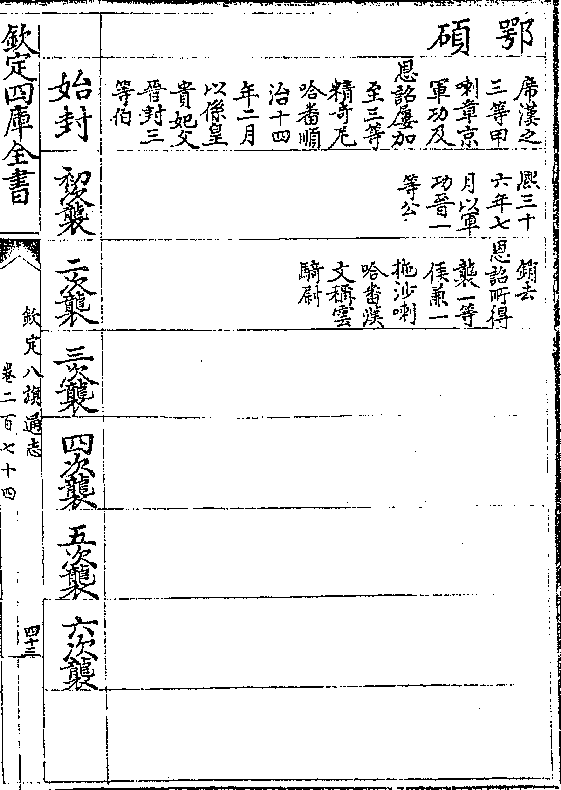 鄂碩
席漢之
三等甲
喇章京
軍功及
恩詔屢加
至三等
精奇尼
哈番順
治十四
年二月
以係皇
貴妃父
晉封三
等伯
熙三十
六年七
月以軍
功晉一
等公
銷去
恩詔所得
襲一等
侯兼一
拖沙喇
哈番漢
文稱雲
騎尉
始封
初次襲
二次襲
三次襲
四次襲
五次襲
六次襲
欽定四庫全書
欽定八旗通志
卷二百七十四
四十三